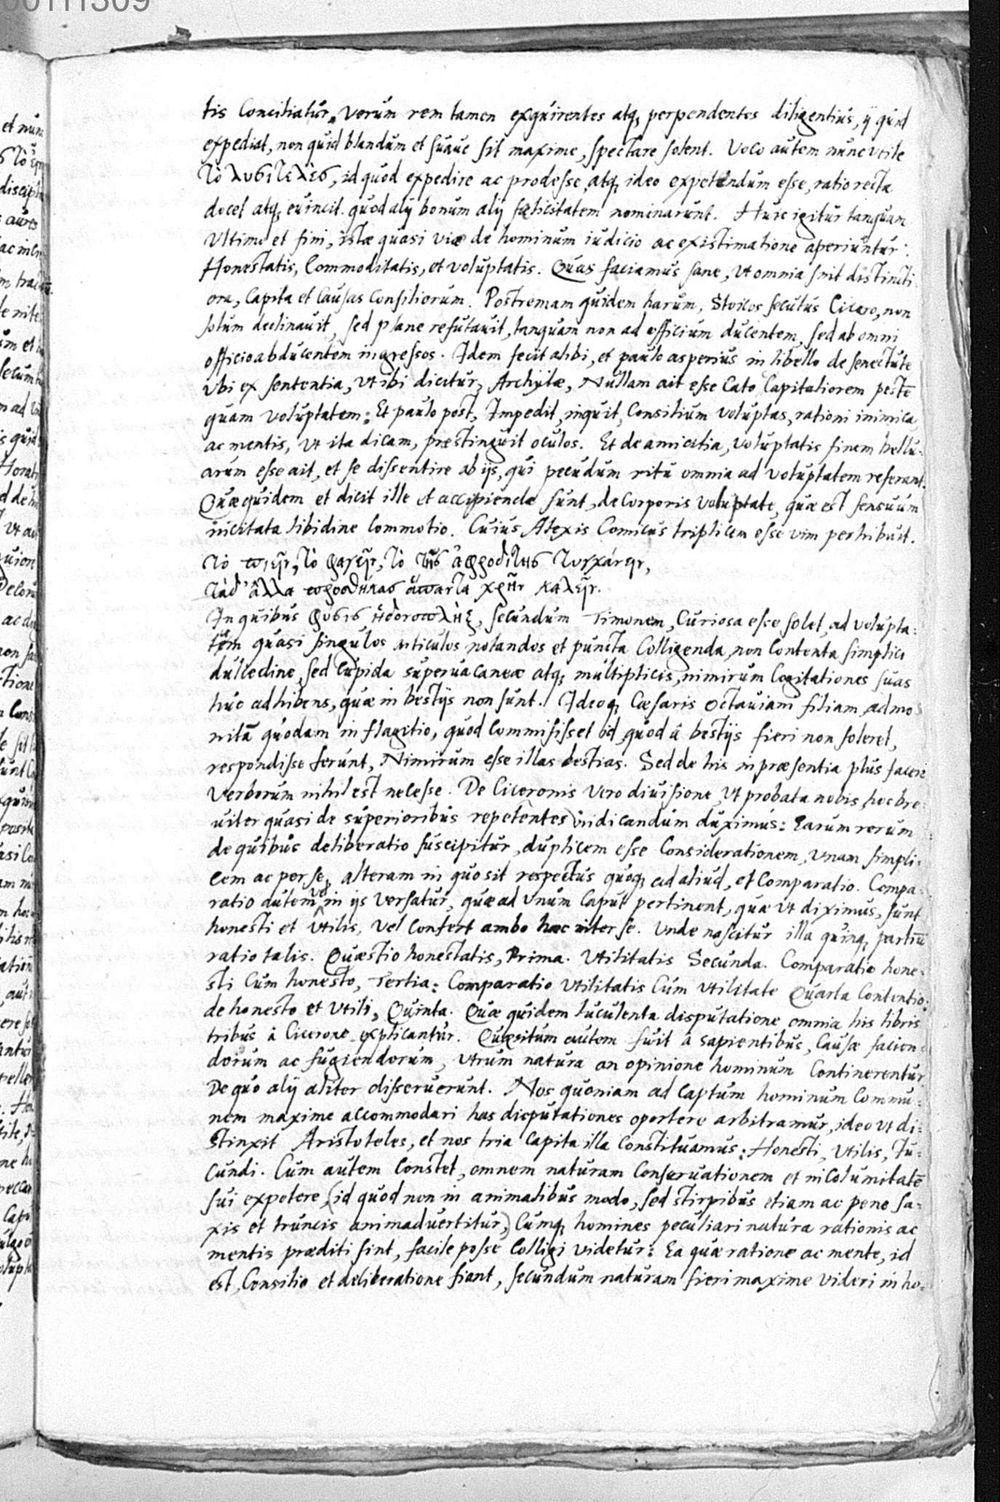 tis conciliatur. Verum rem tamen exquirentes atq; perpendentes diligentius, ij quid
expediat, non quid blandum et suave sit maxime, spectare solent. Voco autem nunc utile
τὸ λυσιτελὲς, id quod expedire ac prodesse, atq; ideo expetendum esse, ratio recta
docet atq; evincit. quod alij bonum alij fœlicitatem nominarunt. Huic igitur tanquam
Ultimo et fini, istæ quasi viæ de hominum iudicio ac existimatione aperiuntur:
Honestatis, Commoditatis, et voluptatis. Quas faciamus sane, ut omnia sint distincti
ora, Capita et Causas Consiliorum. Postremam quidem harum, Stoicos secutus Cicero, non
solum declinavit, sed plane refutavit, tanquam non ad officium ducentem, sed ab omni
officio abducentem ingressos. Idem fecit alibi, et paulo asperius in libello de senectute
Ubi ex sententia, ut ibi dicitur, Archytæ, Nullam ait esse Cato Capitaliorem pestē
quam voluptatem: Et paulo post, Impedit, inquit, Consilium voluptas, rationi inimica,
ac mentis, ut ita dicam, præstinguit oculos. Et de amicitia, voluptatis finem bellu-
arum esse ait, et se dissentire ab ijs, qui pecudum ritu omnia ad voluptatem referant.
Quæ quidem et dicit ille et accipienda sunt, de Corporis voluptate, quæ est sensuum
incitata libidine commotio. Cuius Alexis Comicus triplicem esse vim perhibuit.
τὸ πιεῖν, τὸ φαγεῖν, τὸ τῆς ἀφροδίτης τυγχάνειν,
τὰ δ' ἄλλα προσθήκας ἅπαντα χρὴν καλεῖν.
In quibus φύσις ἡδονοπλὴξ, secundum Timonem, Curiosa esse solet, ad volupta-
tem quasi singulos articulos notandos et puncta Colligenda, non Contenta simplici
dulcedine, sed Cupida supervacaneæ atq; multiplicis, nimirum Cogitationes suas
huc adhibens, quæ in bestijs non sunt. Ideoq; Cæsaris Octaviani filiam admo
nitā quodam in flagitio, quod Commisisset id, quod â bestijs fieri non soleret,
respondisse ferunt, Nimirum esse illas bestias. Sed de his in præsentia plus facere
verborum nihil est necesse. De Ciceronis vero divisione, ut probata nobis, hoc bre
viter quasi de superioribus repetentes indicandum duximus: Earum rerum
de quibus deliberatio suscipitur, duplicem esse Considerationem, unam simpli-
cem ac per se, alteram in quo sit respectus quoq; ad aliud, et Comparatio. Compa-
ratio autem vel in ijs versatur, quæ ad unum Caput pertinent, quæ ut diximus, sunt
honesti et utilis, vel Confert ambo hæc inter se. Unde nascitur illa quinq; partiū
ratio talis. Quæstio honestatis, Prima. Utilitatis Secunda. Comparatio hone-
sti Cum honesto, Tertia: Comparatio utilitatis Cum utilitate Quarta Contentio
de honesto et utili, Quinta. Quæ quidem luculenta disputatione omnia his libris
tribus â Cicerone explicantur. Quæsitum autem fuit â sapientibus, Causæ facien-
dorum ac fugiendorum, utrum natura an opinione hominum Continerentur
De quo alij aliter disseruerunt. Nos quoniam ad Captum hominum Commu-
nem maxime accommodari has disputationes oportere arbitramur, ideo ut di-
stinxit Aristoteles, et nos tria Capita illa Constituamus: Honesti, Utilis, Iu-
cundi. Cum autem Constet, omnem naturam Conservationem et incolumitatē
sui expetere (id quod non in animalibus modo, sed stirpibus etiam ac pene sa-
xis et truncis animadvertitur) Cumq; homines peculiari natura rationis ac
mentis præditi sint, facile posse Colligi videtur: Ea quæ ratione ac mente, id
est, Consilio et deliberatione fiant, secundum naturam fieri maxime videri in ho-